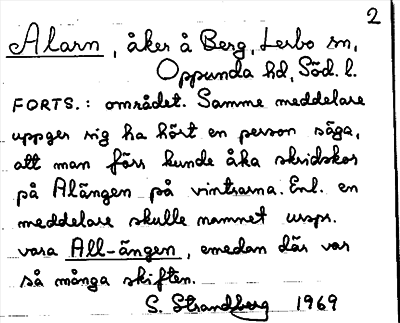 2
Alarn, åker å Berg, Lerbo sn,
Oppunda hd, Söd. l.
FORTS.: området. Samme meddelare
uppger sig ha hört en person säga,
att man förr kunde åka skridskor
på Alängen på vintrarna. Enl. en
meddelare skulle namnet urspr.
vara All-ängen, emedan där var
så många skiften.
S. Strandberg 1969